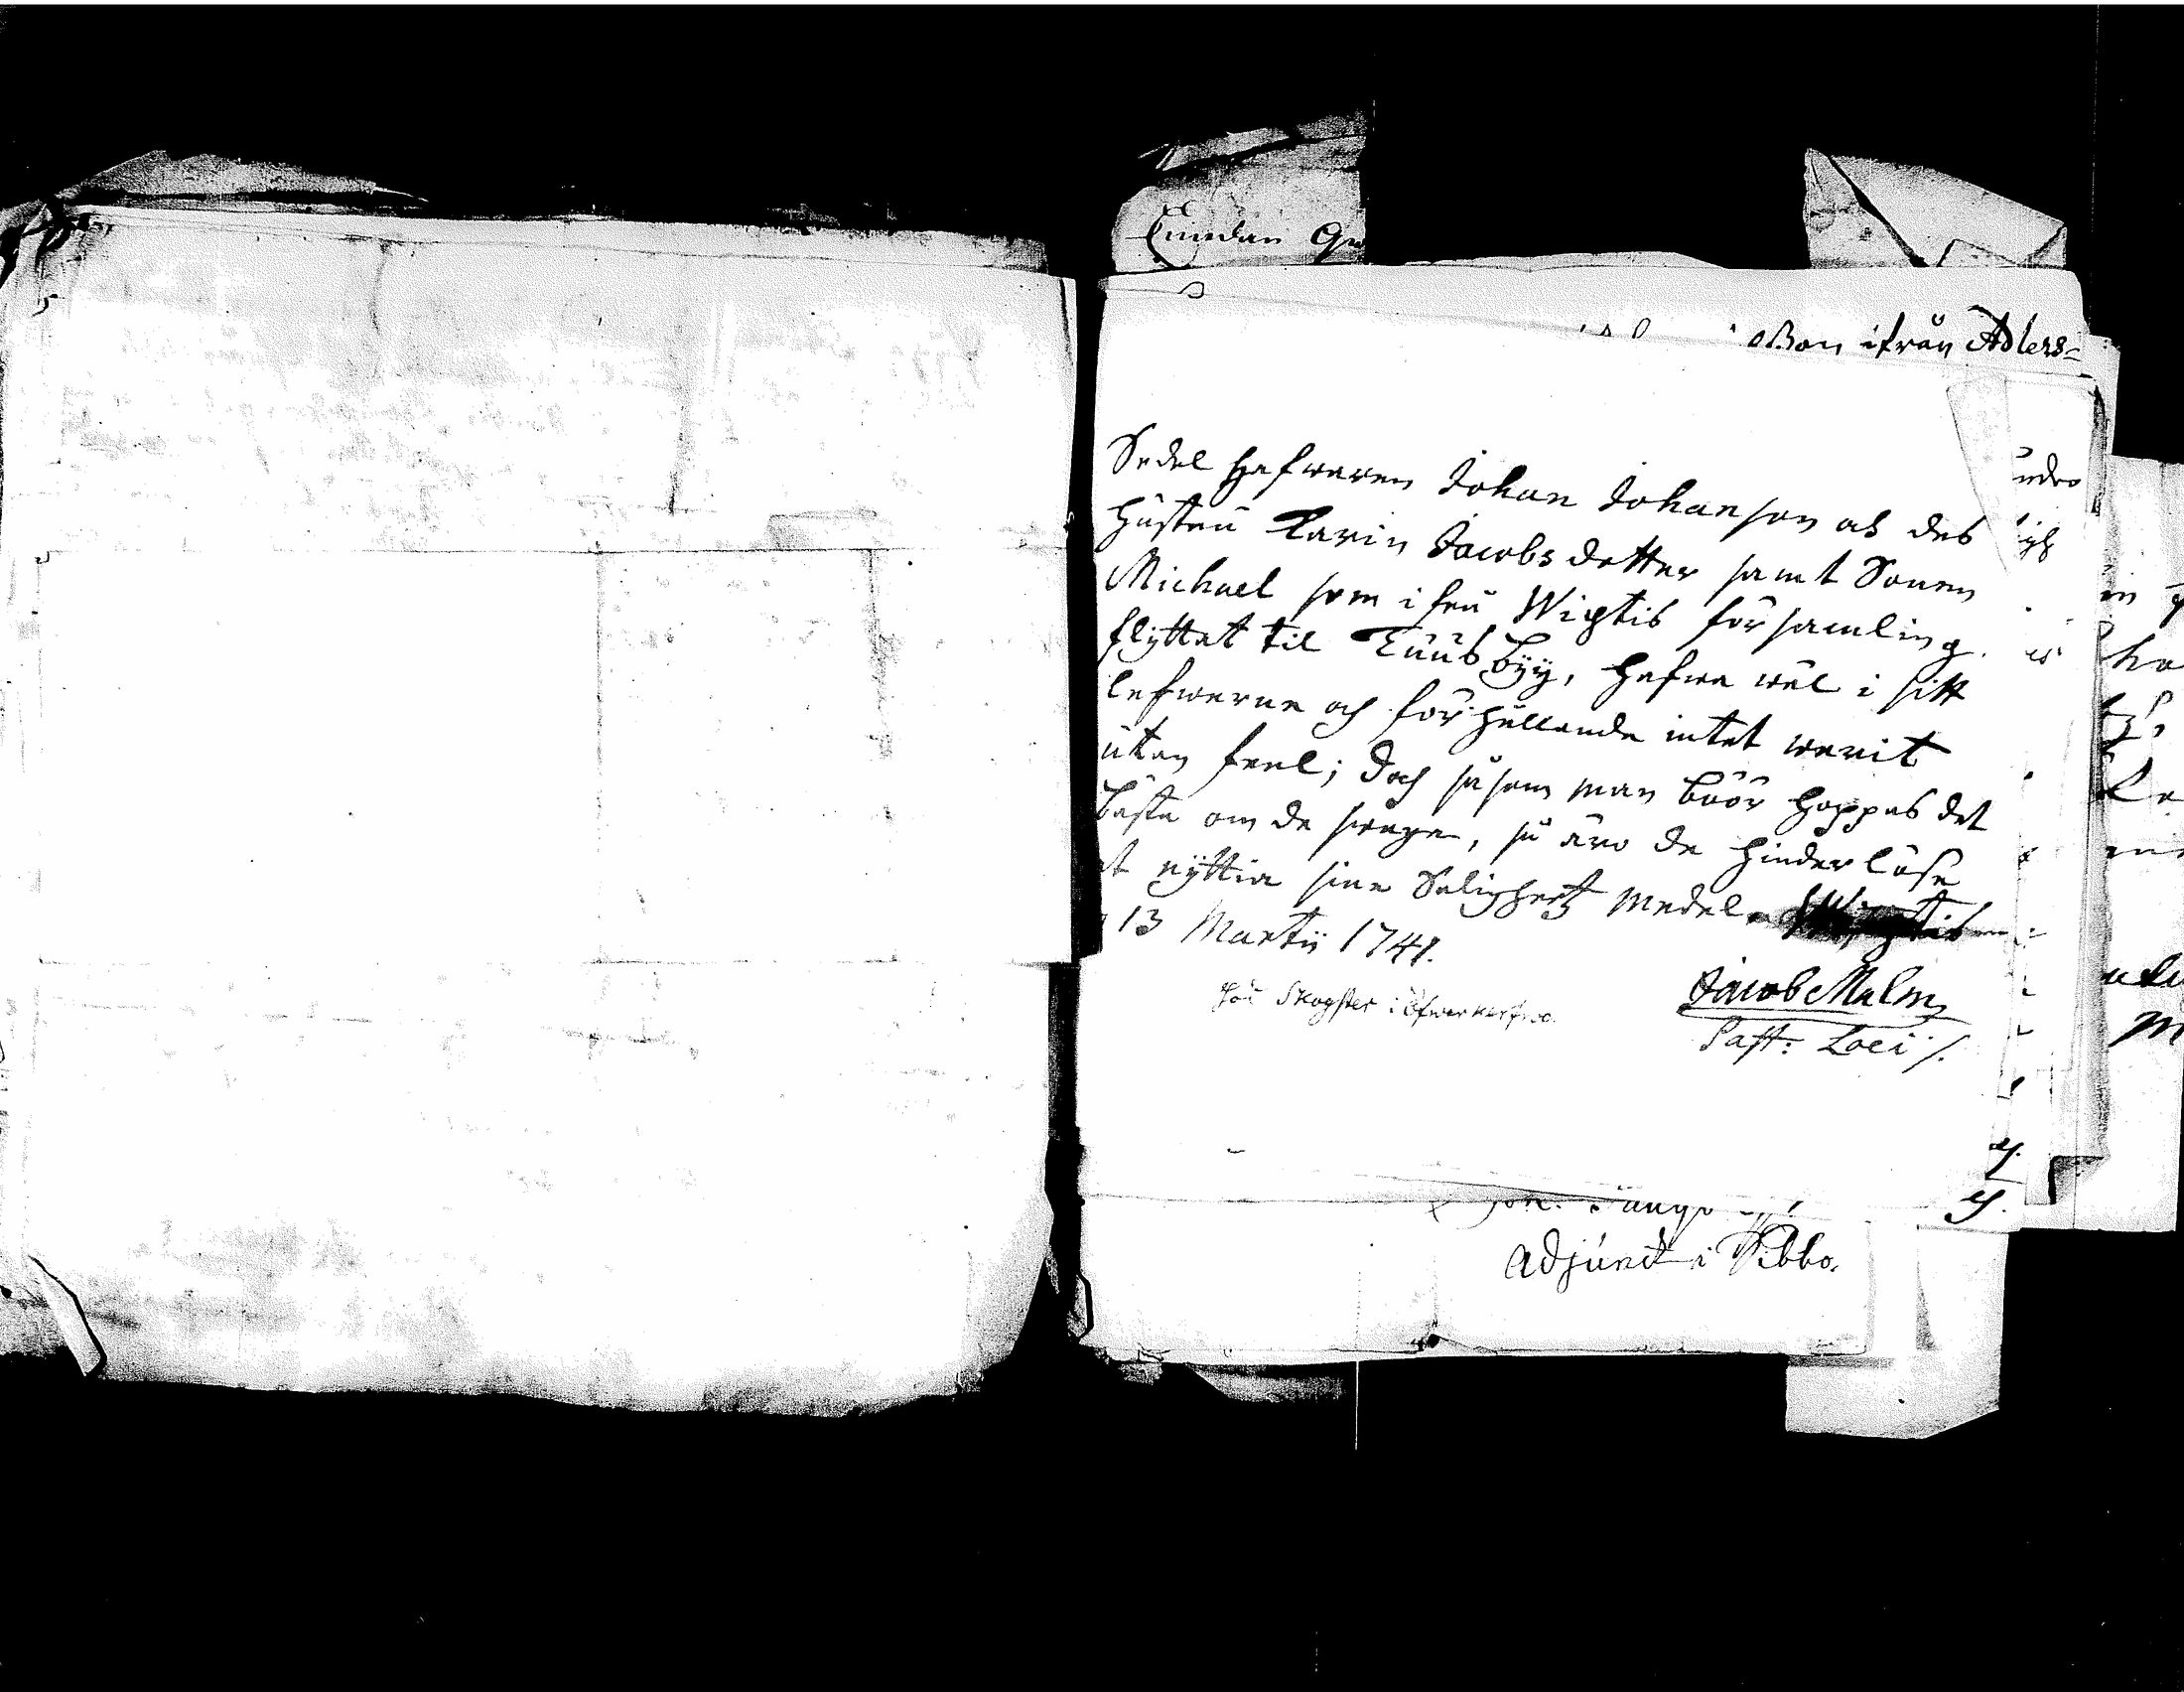 ifrån Adlers=
Sedel hafwaren Johan Johanson ok des
hustru Karin Jacobs detter samt Sonen
Michael som ifrå Wichtis församling
flyttat til Tuusby, hafwa wäl i sitt
lefwerne och förhållande intet warit
utan feel; doch såsom man böör hoppas det
bästa om de swage, så äro de hinderlöse
at nyttia sine Salighetz medel. Wichtis
13 Martii 1741.
Jacob Malm
Past: Loci /.
Hos Skogster i
Adjunct i Sibbo.